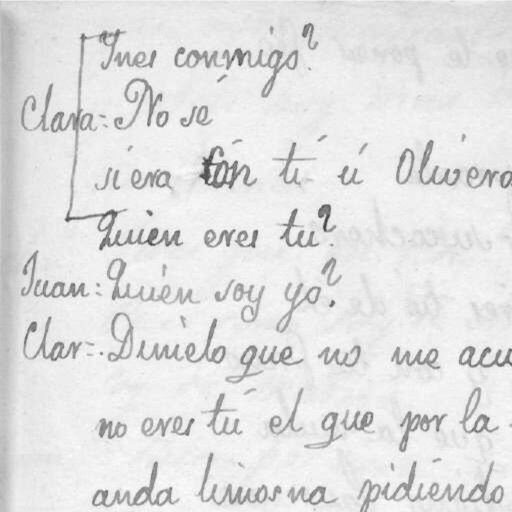 Ines conmigo?
Clara = No sé
si era con tú ú Olivera
Quien eres tú?
Juan = Quién soy yo?
Clar = Dimelo que no me acu
no eres tú el que por la
anda limosna pidiendo